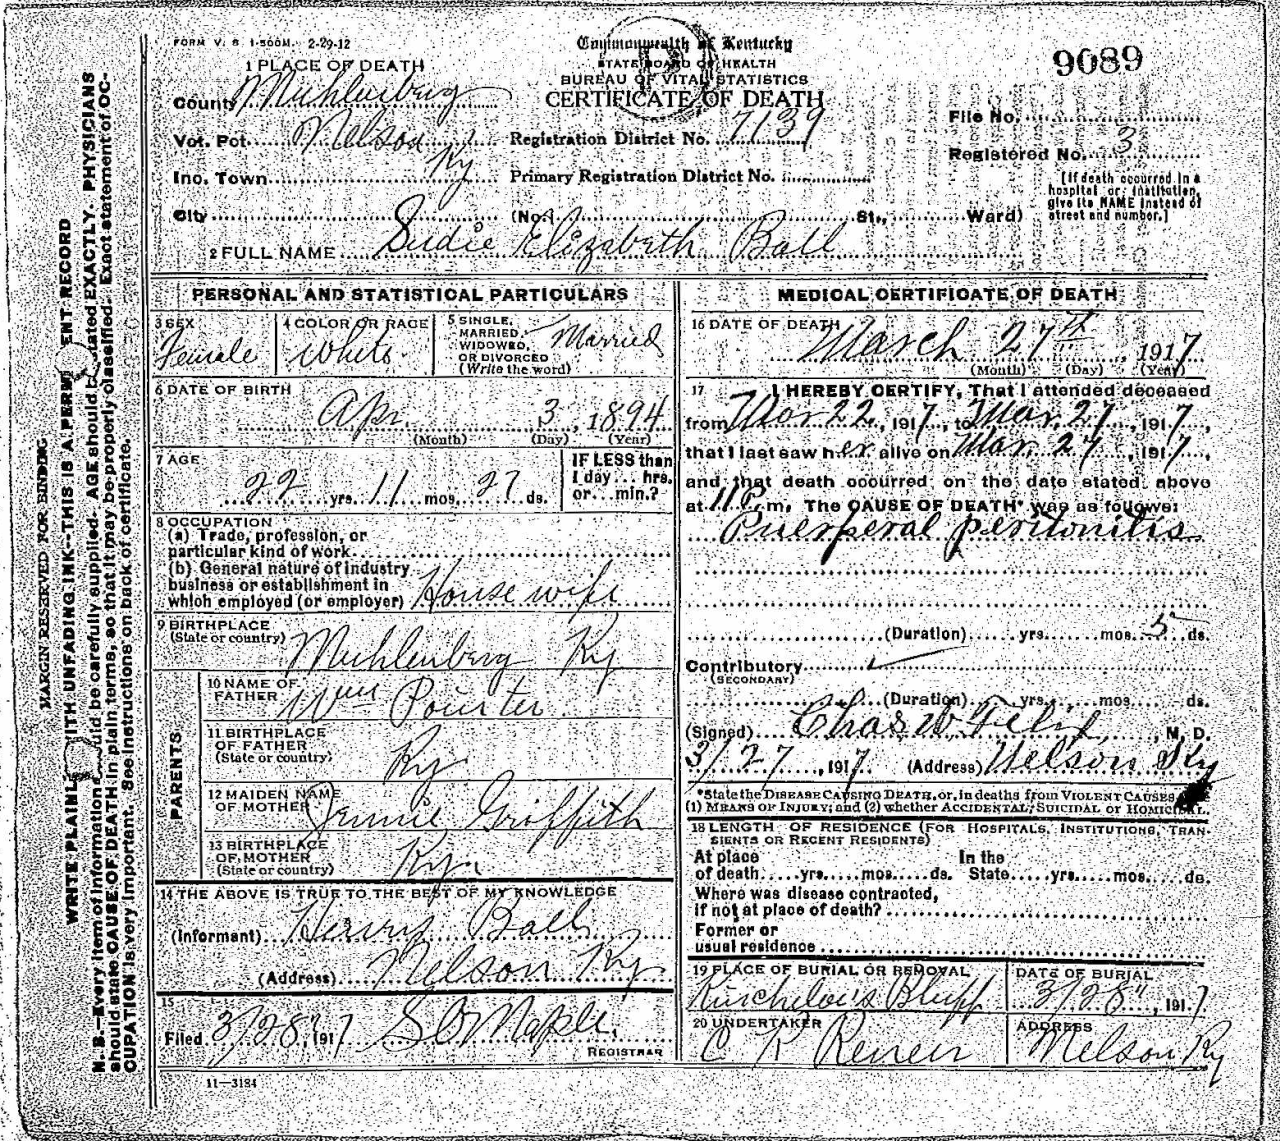 FORM V. S. 1-500M. 2-29-12
Commonwealth of Kentucky
STATE BOARD OF HEALTH
BUREAU OF VITAL STATISTICS
CERTIFICATE OF DEATH
9089
1 PLACE OF DEATH
County Muhlenberg
Vot. Pct. Nelson
Ky
Inc. Town
City
Registration District No. 7139
Primary Registration District No.
(No. St., Ward)
File No.
Registered No. 3
[If death occurred in a
hospital or institution,
give its NAME instead of
street and number.]
2 FULL NAME Sudie Elizabeth Ball
PERSONAL AND STATISTICAL PARTICULARS
3 SEX
Female
4 COLOR OR RACE
White
5 SINGLE,
MARRIED,
WIDOWED,
OR DIVORCED
(Write the word)
Married
6 DATE OF BIRTH
Apr. 3, 1894
(Month) (Day) (Year)
7 AGE
22 yrs. 11 mos. 27 ds.
IF LESS than
1 day... hrs.
or... min.?
8 OCCUPATION
(a) Trade, profession, or
particular kind of work
(b) General nature of industry
business or establishment in
which employed (or employer) House wife
9 BIRTHPLACE
(State or country) Muhlenberg Ky
PARENTS
10 NAME OF
FATHER Wm Pourter
11 BIRTHPLACE
OF FATHER
(State or country) Ky
12 MAIDEN NAME
OF MOTHER Jennie Griffith
13 BIRTHPLACE
OF MOTHER
(State or country) Ky.
14 THE ABOVE IS TRUE TO THE BEST OF MY KNOWLEDGE
(Informant) Ball
(Address) Nelson Ky
15
Filed 3/28", 1917
REGISTRAR
11-3184
MEDICAL CERTIFICATE OF DEATH
16 DATE OF DEATH
March 27th, 1917
(Month) (Day) (Year)
17 I HEREBY CERTIFY, That I attended deceased
from Mar 22, 1917, to Mar. 27, 1917,
that I last saw her alive on Mar. 27, 1917,
and that death occurred on the date stated above
at 11 P. m. The CAUSE OF DEATH* was as follows:
Puerperal peritonitis
(Duration) yrs. mos. 5 ds.
Contributory
(SECONDARY)
(Duration) yrs. mos. ds.
(Signed) Chas W Felix, M. D.
3/27, 1917. (Address) Nelson Ky
*State the DISEASE CAUSING DEATH, or, in deaths from VIOLENT CAUSES
(1) MEANS OF INJURY; and (2) whether ACCIDENTAL, SUICIDAL or
18 LENGTH OF RESIDENCE (FOR HOSPITALS, INSTITUTIONS, TRAN-
SIENTS OR RECENT RESIDENTS)
At place In the
of death yrs. mos. ds. State yrs. mos. ds.
Where was disease contracted,
if not at place of death?
Former or
usual residence
19 PLACE OF BURIAL OR REMOVAL
Bluff
DATE OF BURIAL
3/28", 1917
20 UNDERTAKER
C R
ADDRESS
Nelson Ky
MARGIN RESERVED FOR BINDING
WRITE PLAINLY WITH UNFADING INK—THIS IS A PERMANENT RECORD
N. B.—Every item of information should be carefully supplied. AGE should be stated EXACTLY. PHYSICIANS
should state CAUSE OF DEATH in plain terms, so that it may be properly classified. Exact statement of OC-
CUPATION is very important. See instructions on back of certificate.